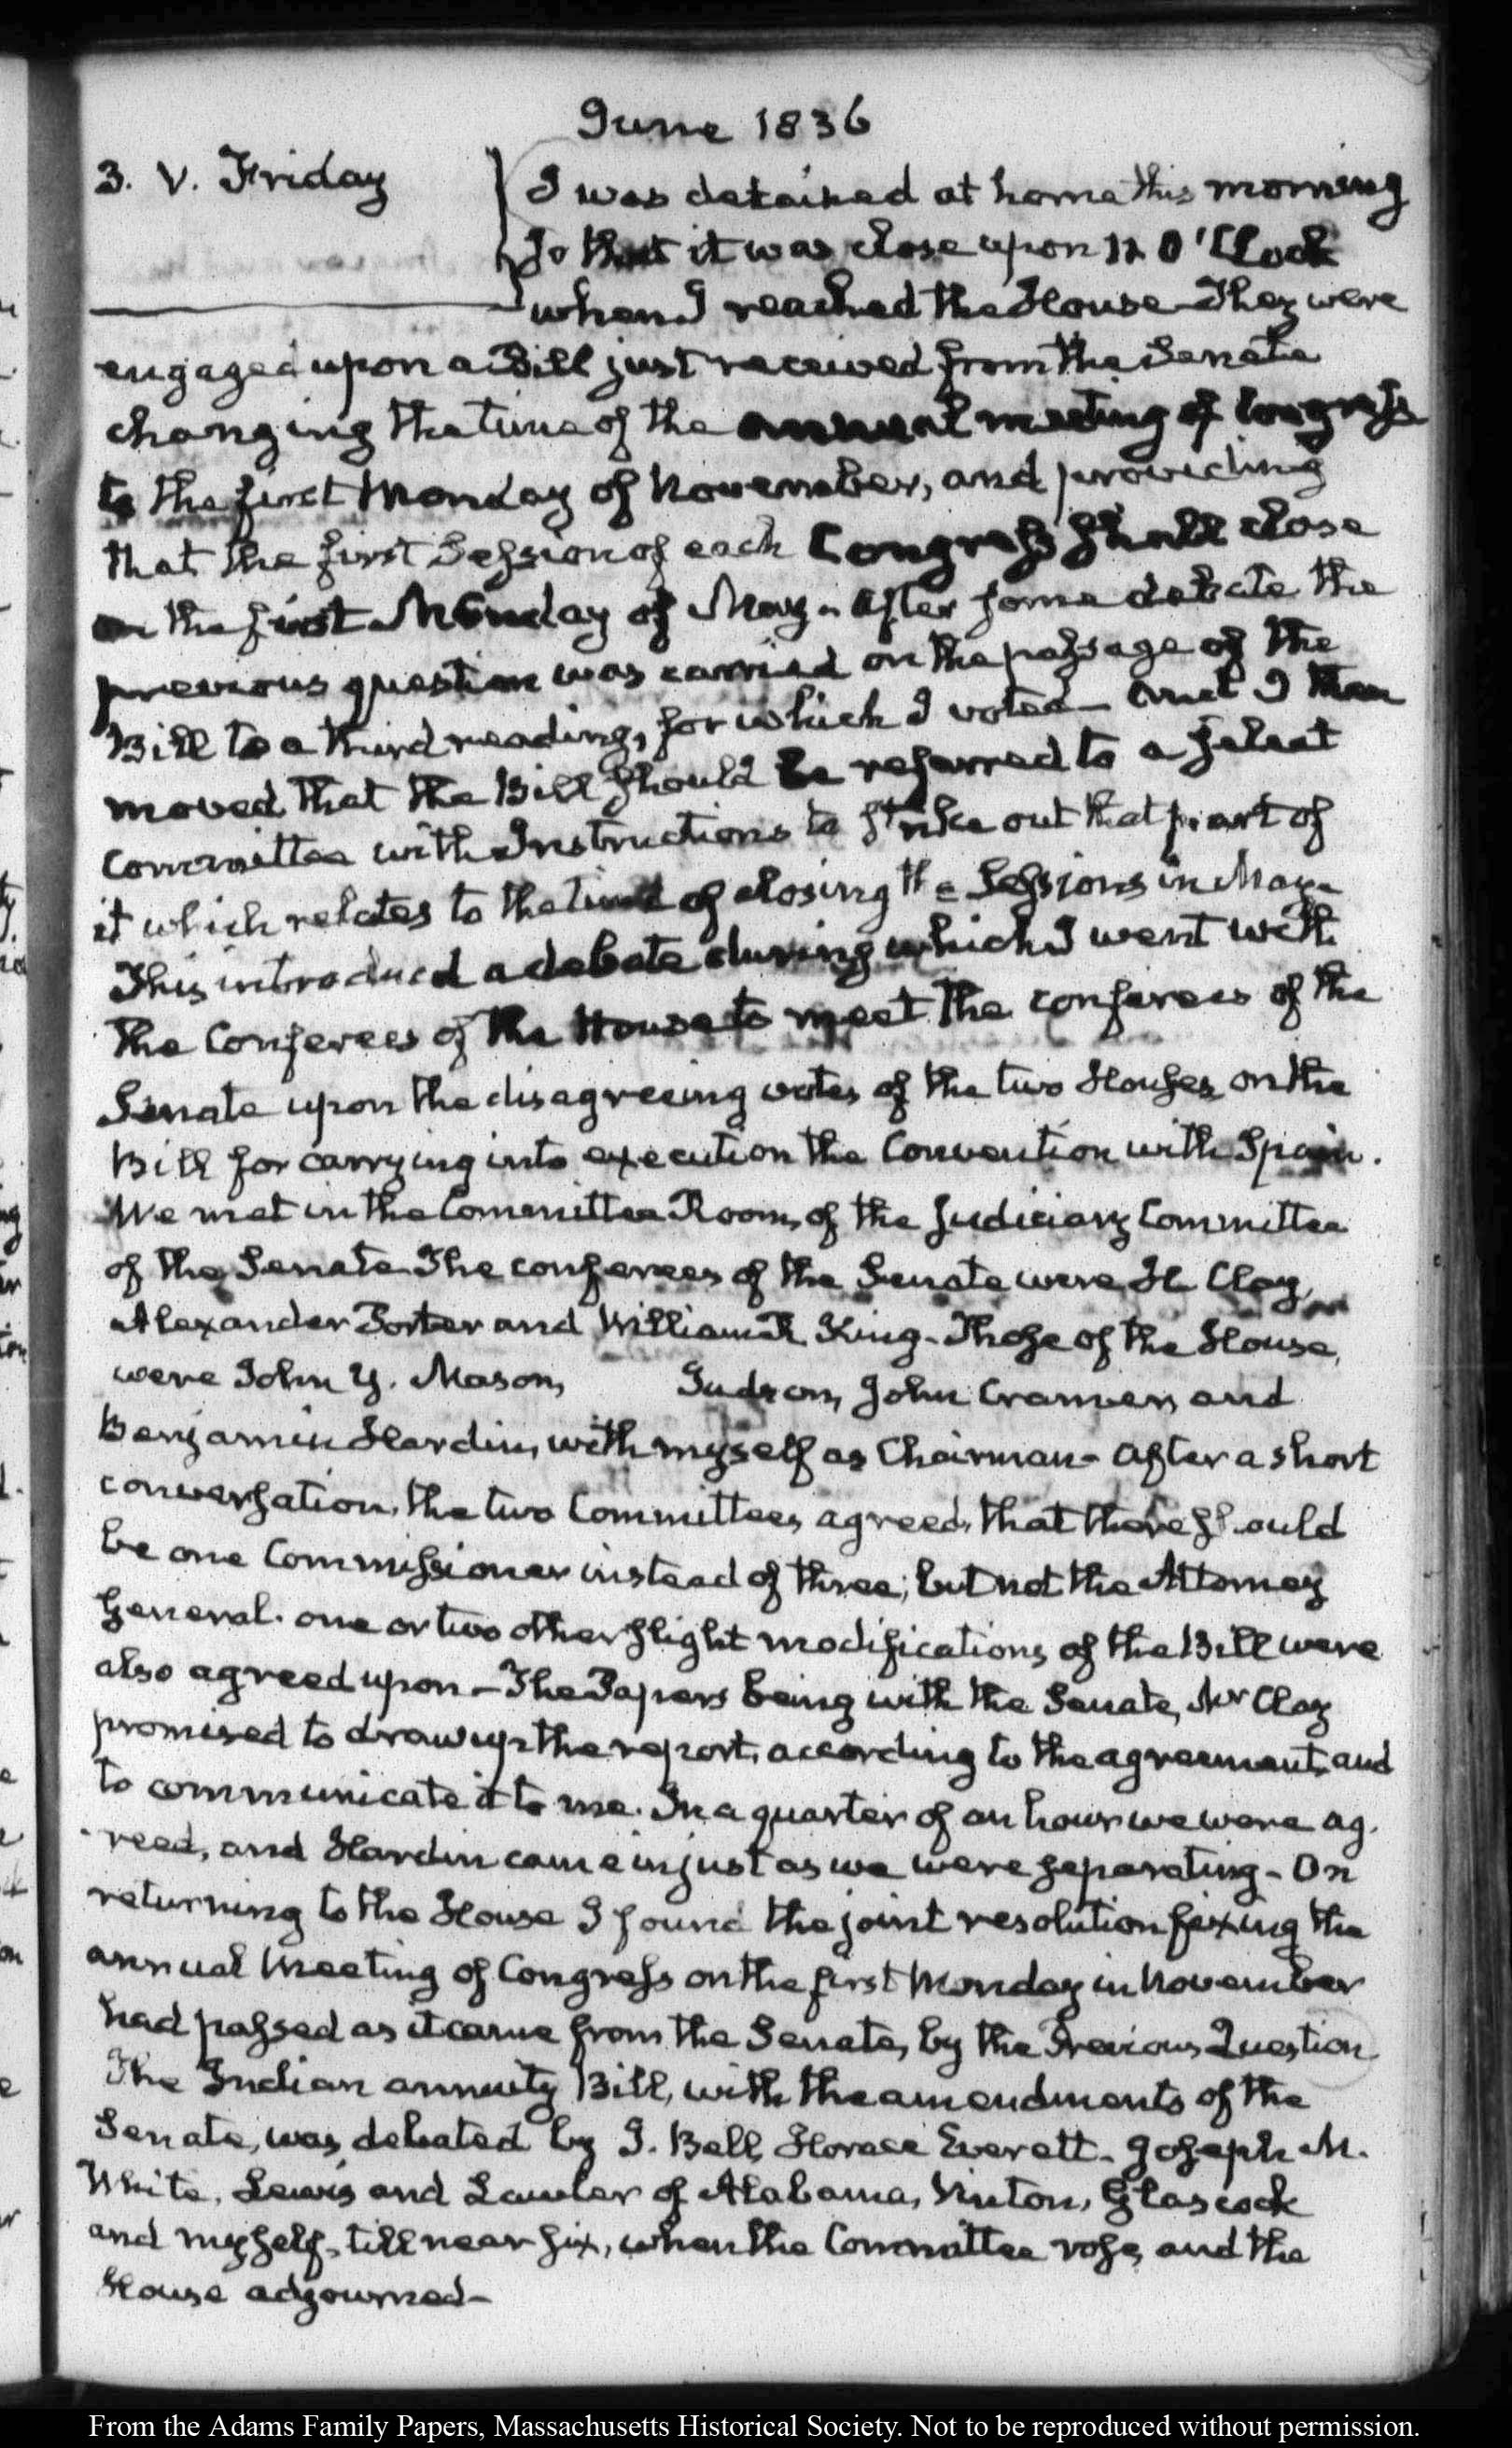 June 1836
3. V. Friday
I was detained at home this morning
so that it was close upon 12 O'Clock
when I reached the House They were
engaged upon a Bill just received from the Senate
changing the time of the annual meeting of Congress
to the first Monday of November, and providing
that the first Session of each Congress shall close
on the first Monday of May. After some debate the
previous question was carried on the passage of the
Bill to a third reading, for which I voted— and I then
moved that the Bill should be referred to a select
Committee with Instructions to strike out that part of
it which relates to the time of closing the Sessions in May.
This introduced a debate during which I went with
the Conferees of the House to meet the conferees of the
Senate upon the disagreeing votes of the two Houses, on the
Bill for carrying into execution the Convention with Spain.
We met in the Committee Room, of the Judiciary Committee
of the Senate The conferees of the Senate were H Clay,
Alexander Porter and William R King— Those of the House,
were John Y. Mason, Judson, John Cramer, and
Benjamin Hardin, with myself as Chairman— After a short
conversation, the two Committees, agreed, that there should
be one Commissioner instead of three; but not the Attorney
General. one or two other slight modifications of the Bill were
also agreed upon— The Papers being with the Senate, Mr Clay
promised to draw up the report, according to the agreement, and
to communicate it to me. In a quarter of an hour we were ag-
reed, and Hardin came in just as we were separating— On
returning to the House I found the joint resolution fixing the
annual Meeting of Congress on the first Monday in November
had passed as it came from the Senate, by the Previous Question
The Indian annuity Bill, with the amendments of the
Senate, was debated by J. Bell, Horace Everett— Joseph M.
White, Lewis and Lawler of Alabama, Vinton, Glascock
and myself, till near six, when the Committee rose, and the
House adjourned—
From the Adams Family Papers, Massachusetts Historical Society. Not to be reproduced without permission.